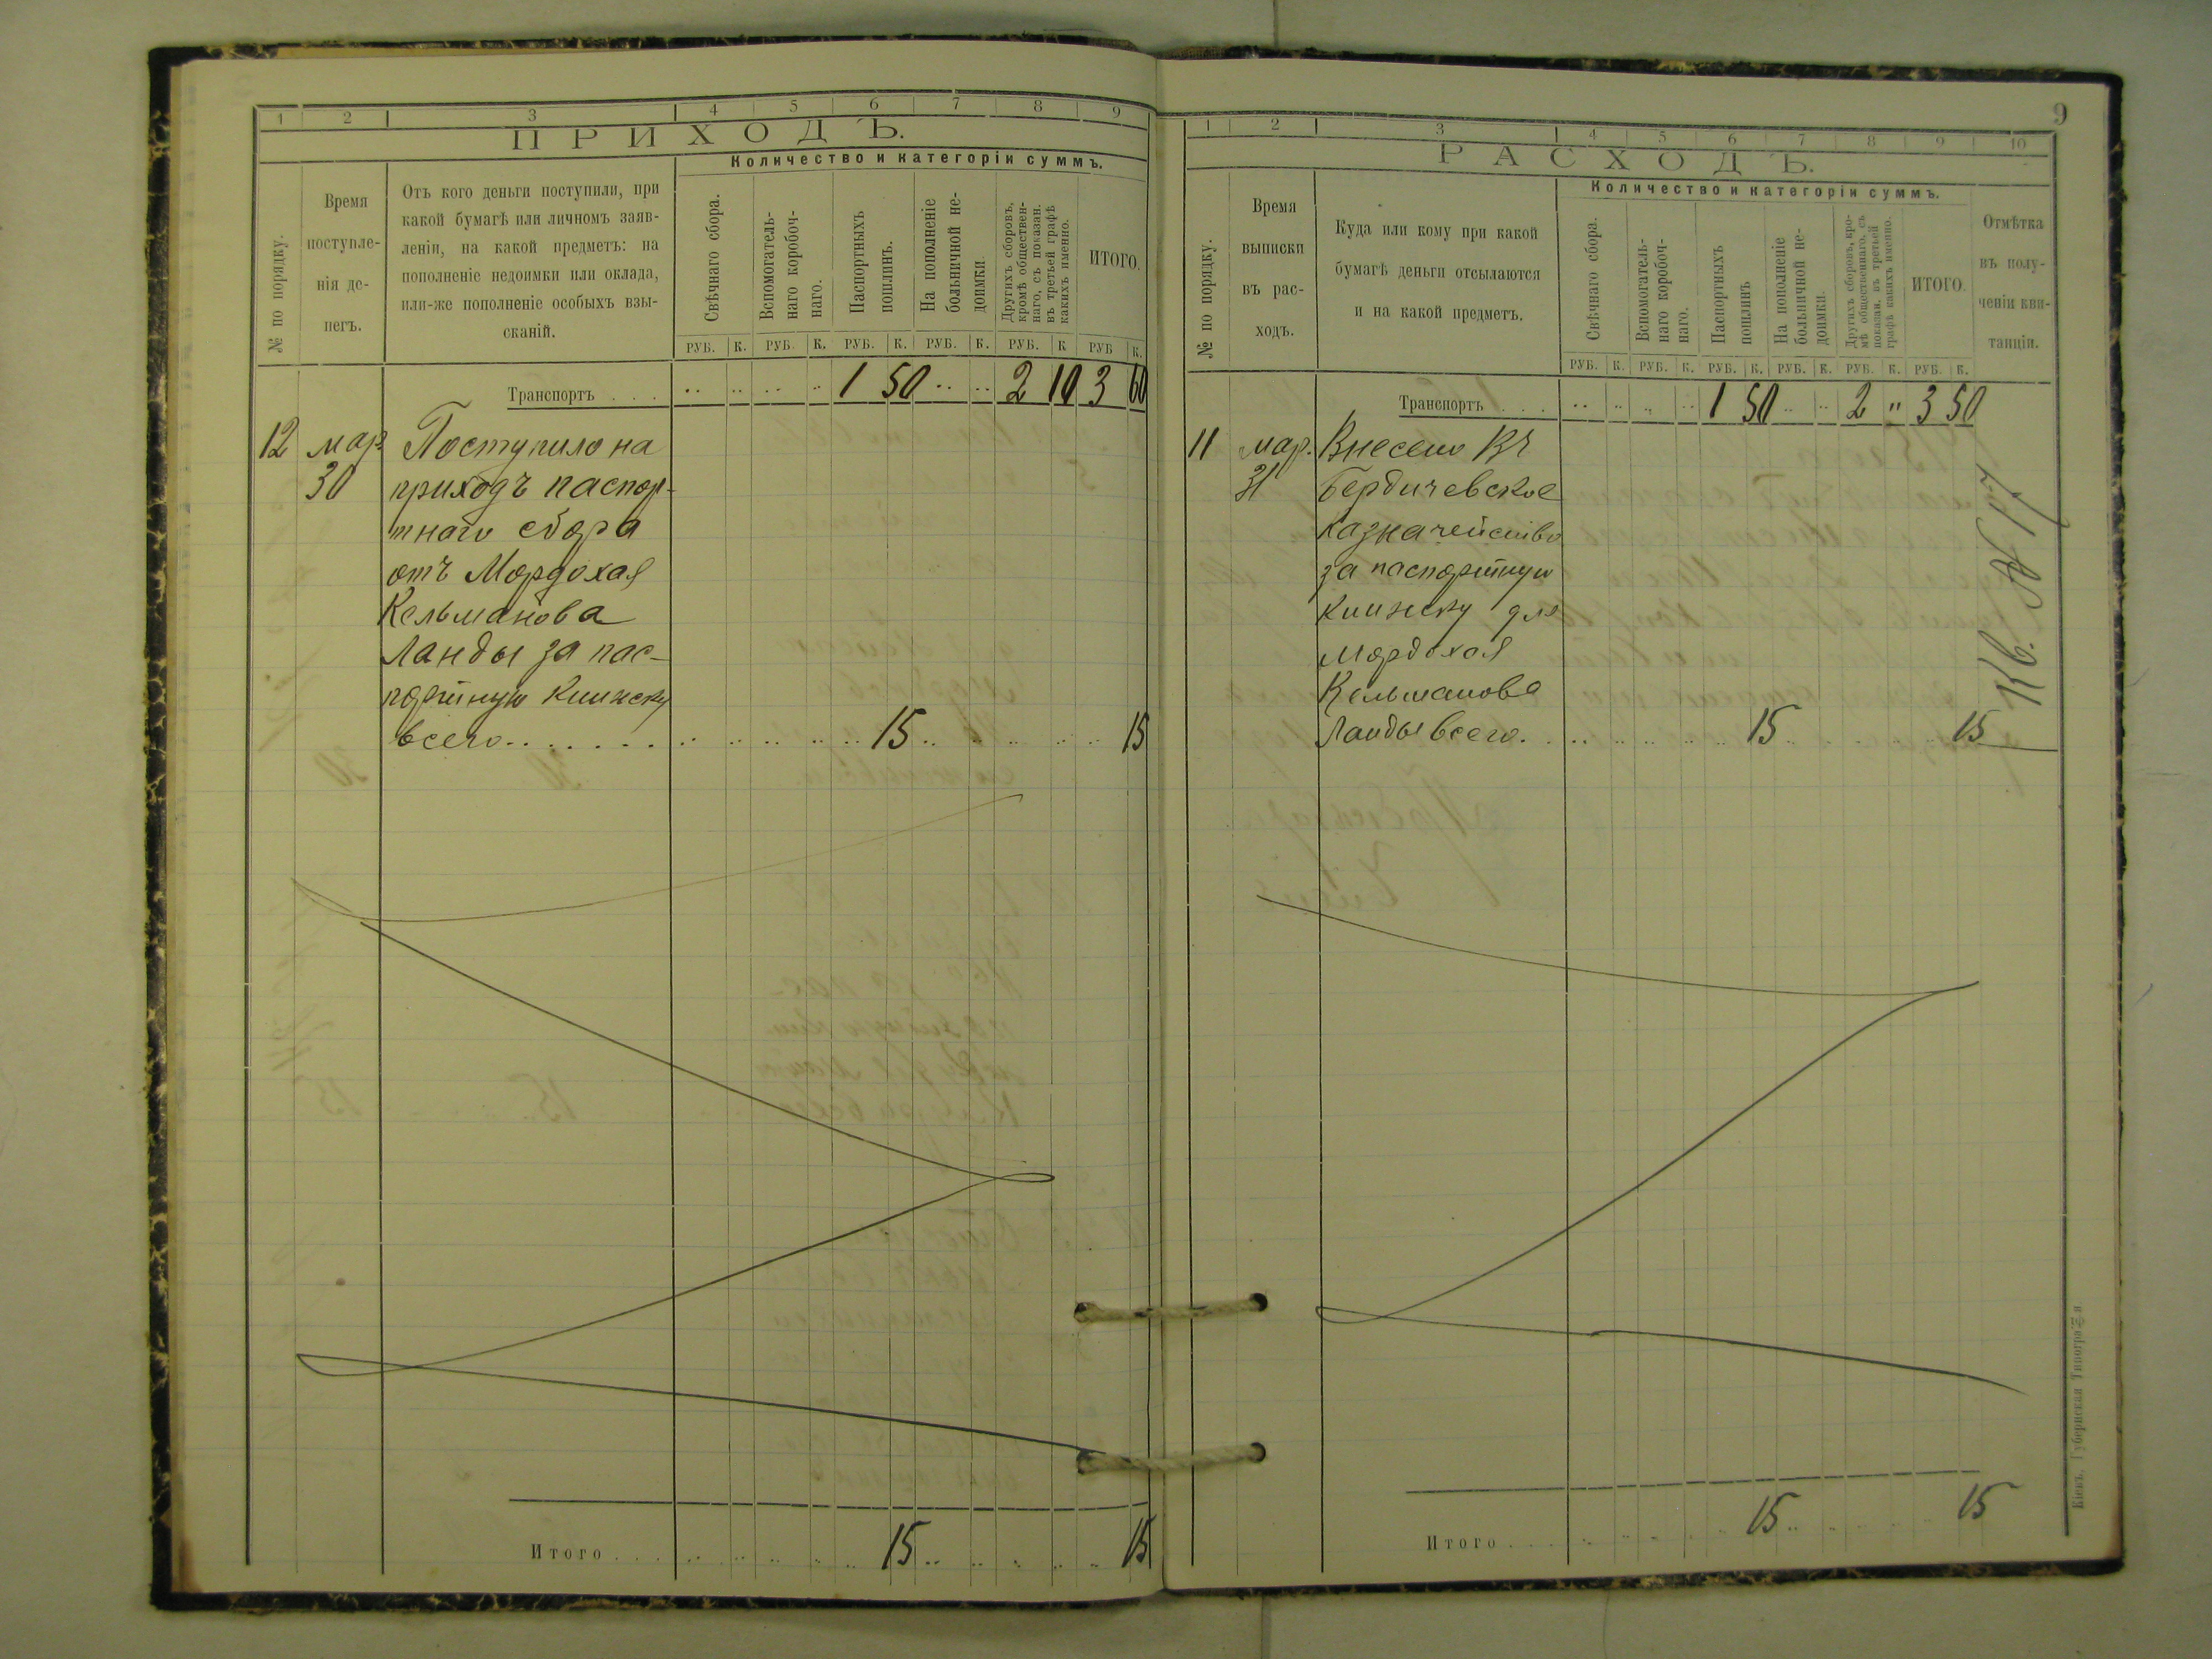 1 2 3 4 5 6 7 8 9
ПРИХОДЪ.
Количество и категоріи суммъ.
№ по порядку.
Время
поступле-
нія де-
негъ.
Отъ кого деньги поступили, при
какой бумагѣ или личномъ заяв-
леніи, на какой предметъ: на
пополненіе недоимки или оклада,
или-же пополненіе особыхъ взы-
сканій.
Свѣчнаго сбора.
Вспомогатель-
наго коробоч-
наго.
Паспортныхъ
пошлинъ.
На пополненіе
больничной не-
доимки.
Другихъ сборовъ,
кромѣ обществен-
наго, съ показан.
въ третьей графѣ
какихъ именно.
ИТОГО.
РУБ. К. РУБ. К. РУБ. К. РУБ. К. РУБ. К РУБ К.
Транспортъ . . . 1 50 2 10 3 60
12 мар. Поступило на
30 приходъ паспор-
тнаго сбора
отъ Мордохая
Кельманова
Ланды за пас-
портную книжку
всего . . . . . . 15 15
Итого . . . 15 15
9
1 2 3 4 5 6 7 8 9 10
РАСХОДЪ.
Количество и категоріи суммъ.
№ по порядку.
Время
выписки
въ рас-
ходъ.
Куда или кому при какой
бумагѣ деньги отсылаются
и на какой предметъ.
Свѣчнаго сбора.
Вспомогатель-
наго коробоч-
наго.
Паспортныхъ
пошлинъ
На пополненіе
больничной не-
доимки.
Другихъ сборовъ, кро-
мѣ общественнаго, съ
показан. въ третьей
графѣ какихъ именно.
ИТОГО.
Отмѣтка
въ полу-
ченіи кви-
танціи.
РУБ. К. РУБ. К. РУБ. К. РУБ. К. РУБ. К. РУБ. К.
Транспортъ . . . 1 50 2 " 3 50
11 мар. Внесено въ
31 Бердичевское
казначейство
за паспортную
книжку для
Мордохая
Кельманова
Ланды всего. 15 15
Кв. № 17
Итого . . . 15 15
Кіевъ. Губернская Типографія